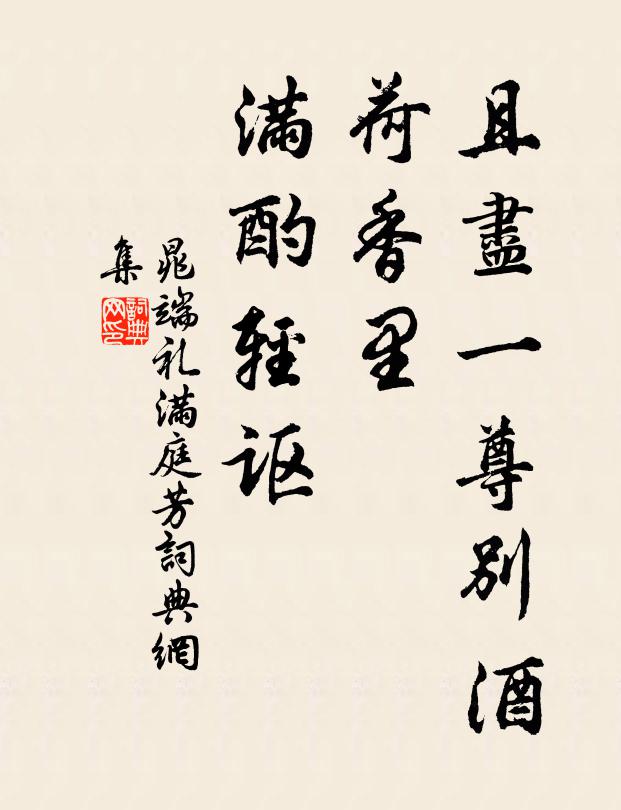 且盡一尊別酒
荷香里
滿酌輕讴
晁端礼滿庭芳詞典網
集
詞典
网印